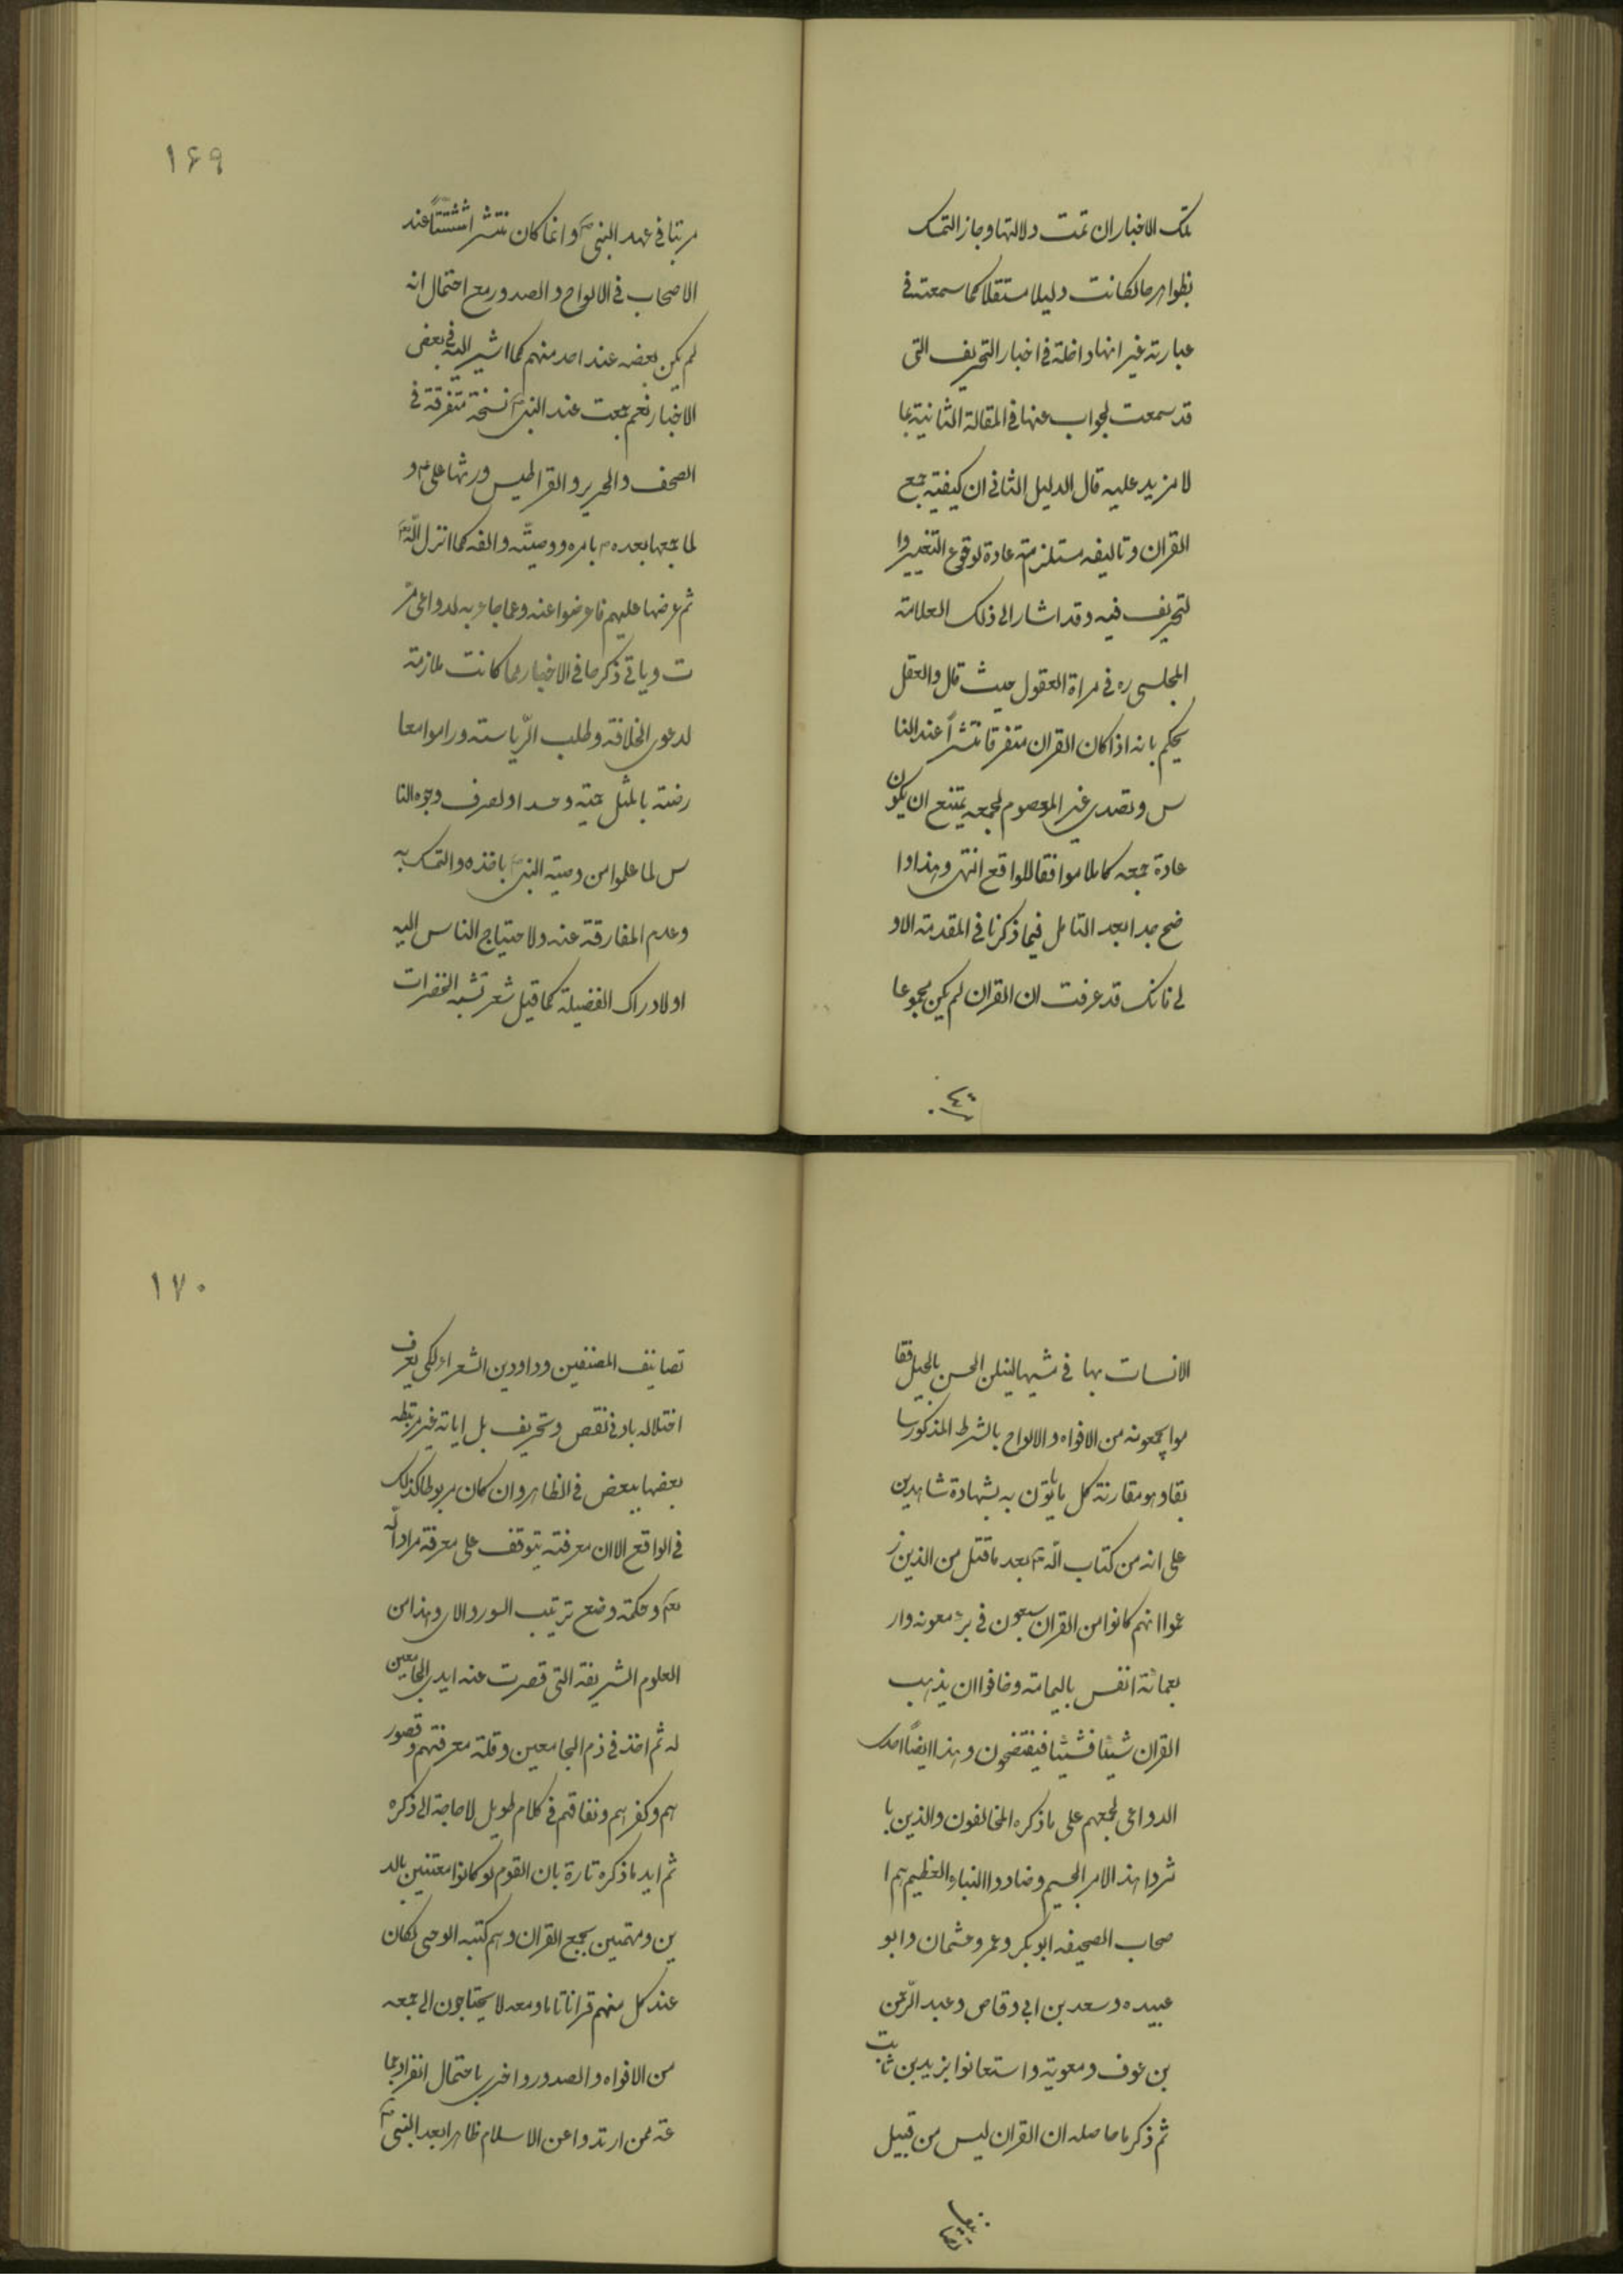 تلك الاخبار ان تمت دلالتها و جاز التمسك
بظواهرها لكانت دليلا مستقلا كما سمعته في
عبارته غير انها داخلة في اخبار التحريف التى
قد سمعت لجواب عنها في المقالة الثانية بما
لا مزيد عليه قال الدليل الثاني ان كيفية جمع
القران و تاليفه مستلزمة عادة لوقوع التغيير وا
لتحريف فيه و قد اشار الى ذلك العلامة
المجلسى ره في مراة العقول حيث قال و العقل
يحكم بانه اذا كان القران متفرقا منتشراً عند النا
س و تصدى غير المعصوم لجمعه يمتنع ان يكون
عادة جمعه كاملا موافقا للواقع انتهى و هذا وا
ضح جدا بعد التامل فيما ذكرنا في المقدمة الاو
لى فانك قد عرفت ان القران لم يكن مجموعا
مرتبا
۱۶۹
مرتبا في عهد النبى ص و انما كان منتشرا متشتتاً عند
الاصحاب في الالواح و الصدور مع احتمال انه
لم يكن بعضه عند احد منهم كما اشير اليه في بعض
الاخبار نعم جمعت عند النبى ص نسخة متفرقة في
الصحف و الحرير و القراطيس ورثها على ع و
لما جمعها بعده ص بامره و وصيته و الفه كما انزل اللّه تع
ثم عرضها عليهم فاعرضوا عنه و عما جاء به لدواعى مر
ت و ياتى ذكرها في الاخبار مما كانت ملازمة
لدعوى الخلافة و طلب الرّياسته و راموا معا
رضته بالمثل حمية و حسدا و لصرف وجوه النا
س لما علموا من وصية النبى ص باخذه و التمسك به
و عدم المفارقة عنه و لاحتياج الناس اليه
او لادراك الفضيلة كما قيل شعر تشبه الخفرات
الانسات بها في مشيها فينلن الحسن بالحيل فقا
موا يجمعونه من الافواه و الالواح بالشرط المذكور سا
بقا و هو مقارنة كل ما ياتون به بشهادة شاهدين
على انه من كتاب اللّه تع بعد ما قتل من الذين ز
عموا انهم كانوا من القران سبعون في بئر معونه و ار
بعمائة انفس باليمامة و خافوا ان يذهب
القران شيئا فشيئا فيفتضحون و هذا ايضاً احدى
الدواعى لجمعهم على ما ذكره المخالفون و الذين با
شروا هذا الامر الجسيم و ضادوا النباء العظيم هم ا
صحاب الصحيفه ابو بكر و عمر و عثمان و ابو
عبيده و سعد بن ابى وقاص و عبد الرّحمن
بن عوف و معوية و استعانوا بزيد بن ثابت
ثم ذكر ما حاصله ان القران ليس من قبيل
تصانيف
۱۷۰
تصانيف المصنفين و دواوين الشعراء لكى يعرف
اختلاله بادنى نقص و تحريف بل اياته غير مرتبطه
بعضها ببعض في الظاهر و ان كان مربوطا كذلك
في الواقع الا ان معرفته يتوقف على معرفة مراد اللّه
تع و حكمة وضع ترتيب السور و الاى و هذا من
العلوم الشريفة التى قصرت عنه ايدى الجامعين
له ثم اخذ في ذم الجامعين و قلة معرفتهم و قصور
هم و كفرهم و نفاقهم في كلام طويل لا حاجة الى ذكره
ثم ايد ما ذكره تارة بان القوم لو كانوا معتنين بالد
ين و مهتمين بجمع القران و هم كتبه الوحى لكان
عند كل منهم قرانا تاما و معه لا يحتاجون الى جمعه
من الافواه و الصدور و اخرى باحتمال انفراد جما
عة ممن ارتدوا عن الاسلام ظاهرا بعد النبى ص